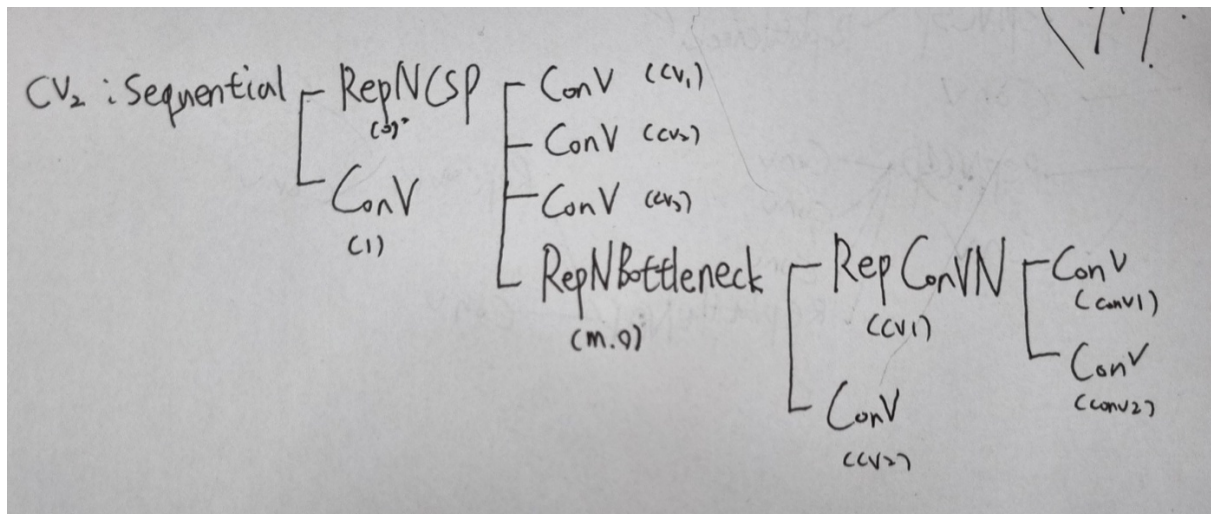 CV₂ : Sequential
RepNCSP
(0)
ConV
(1)
ConV (CV₁)
ConV (CV₂)
ConV (CV₃)
RepNBottleneck
(m.0)
RepConVN
(CV1)
ConV
(CV2)
ConV
(conv1)
ConV
(conv2)